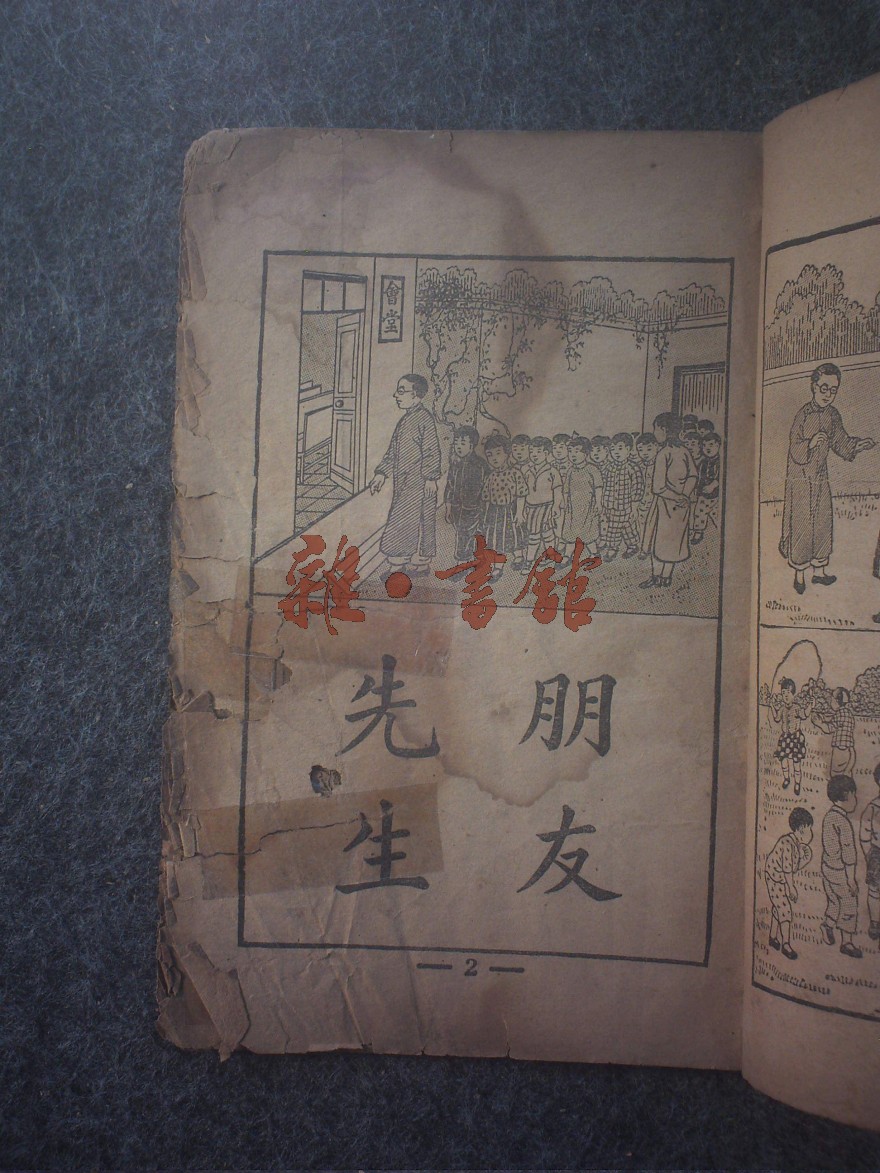 會堂
雜·書館
朋友
先生
— 2 —